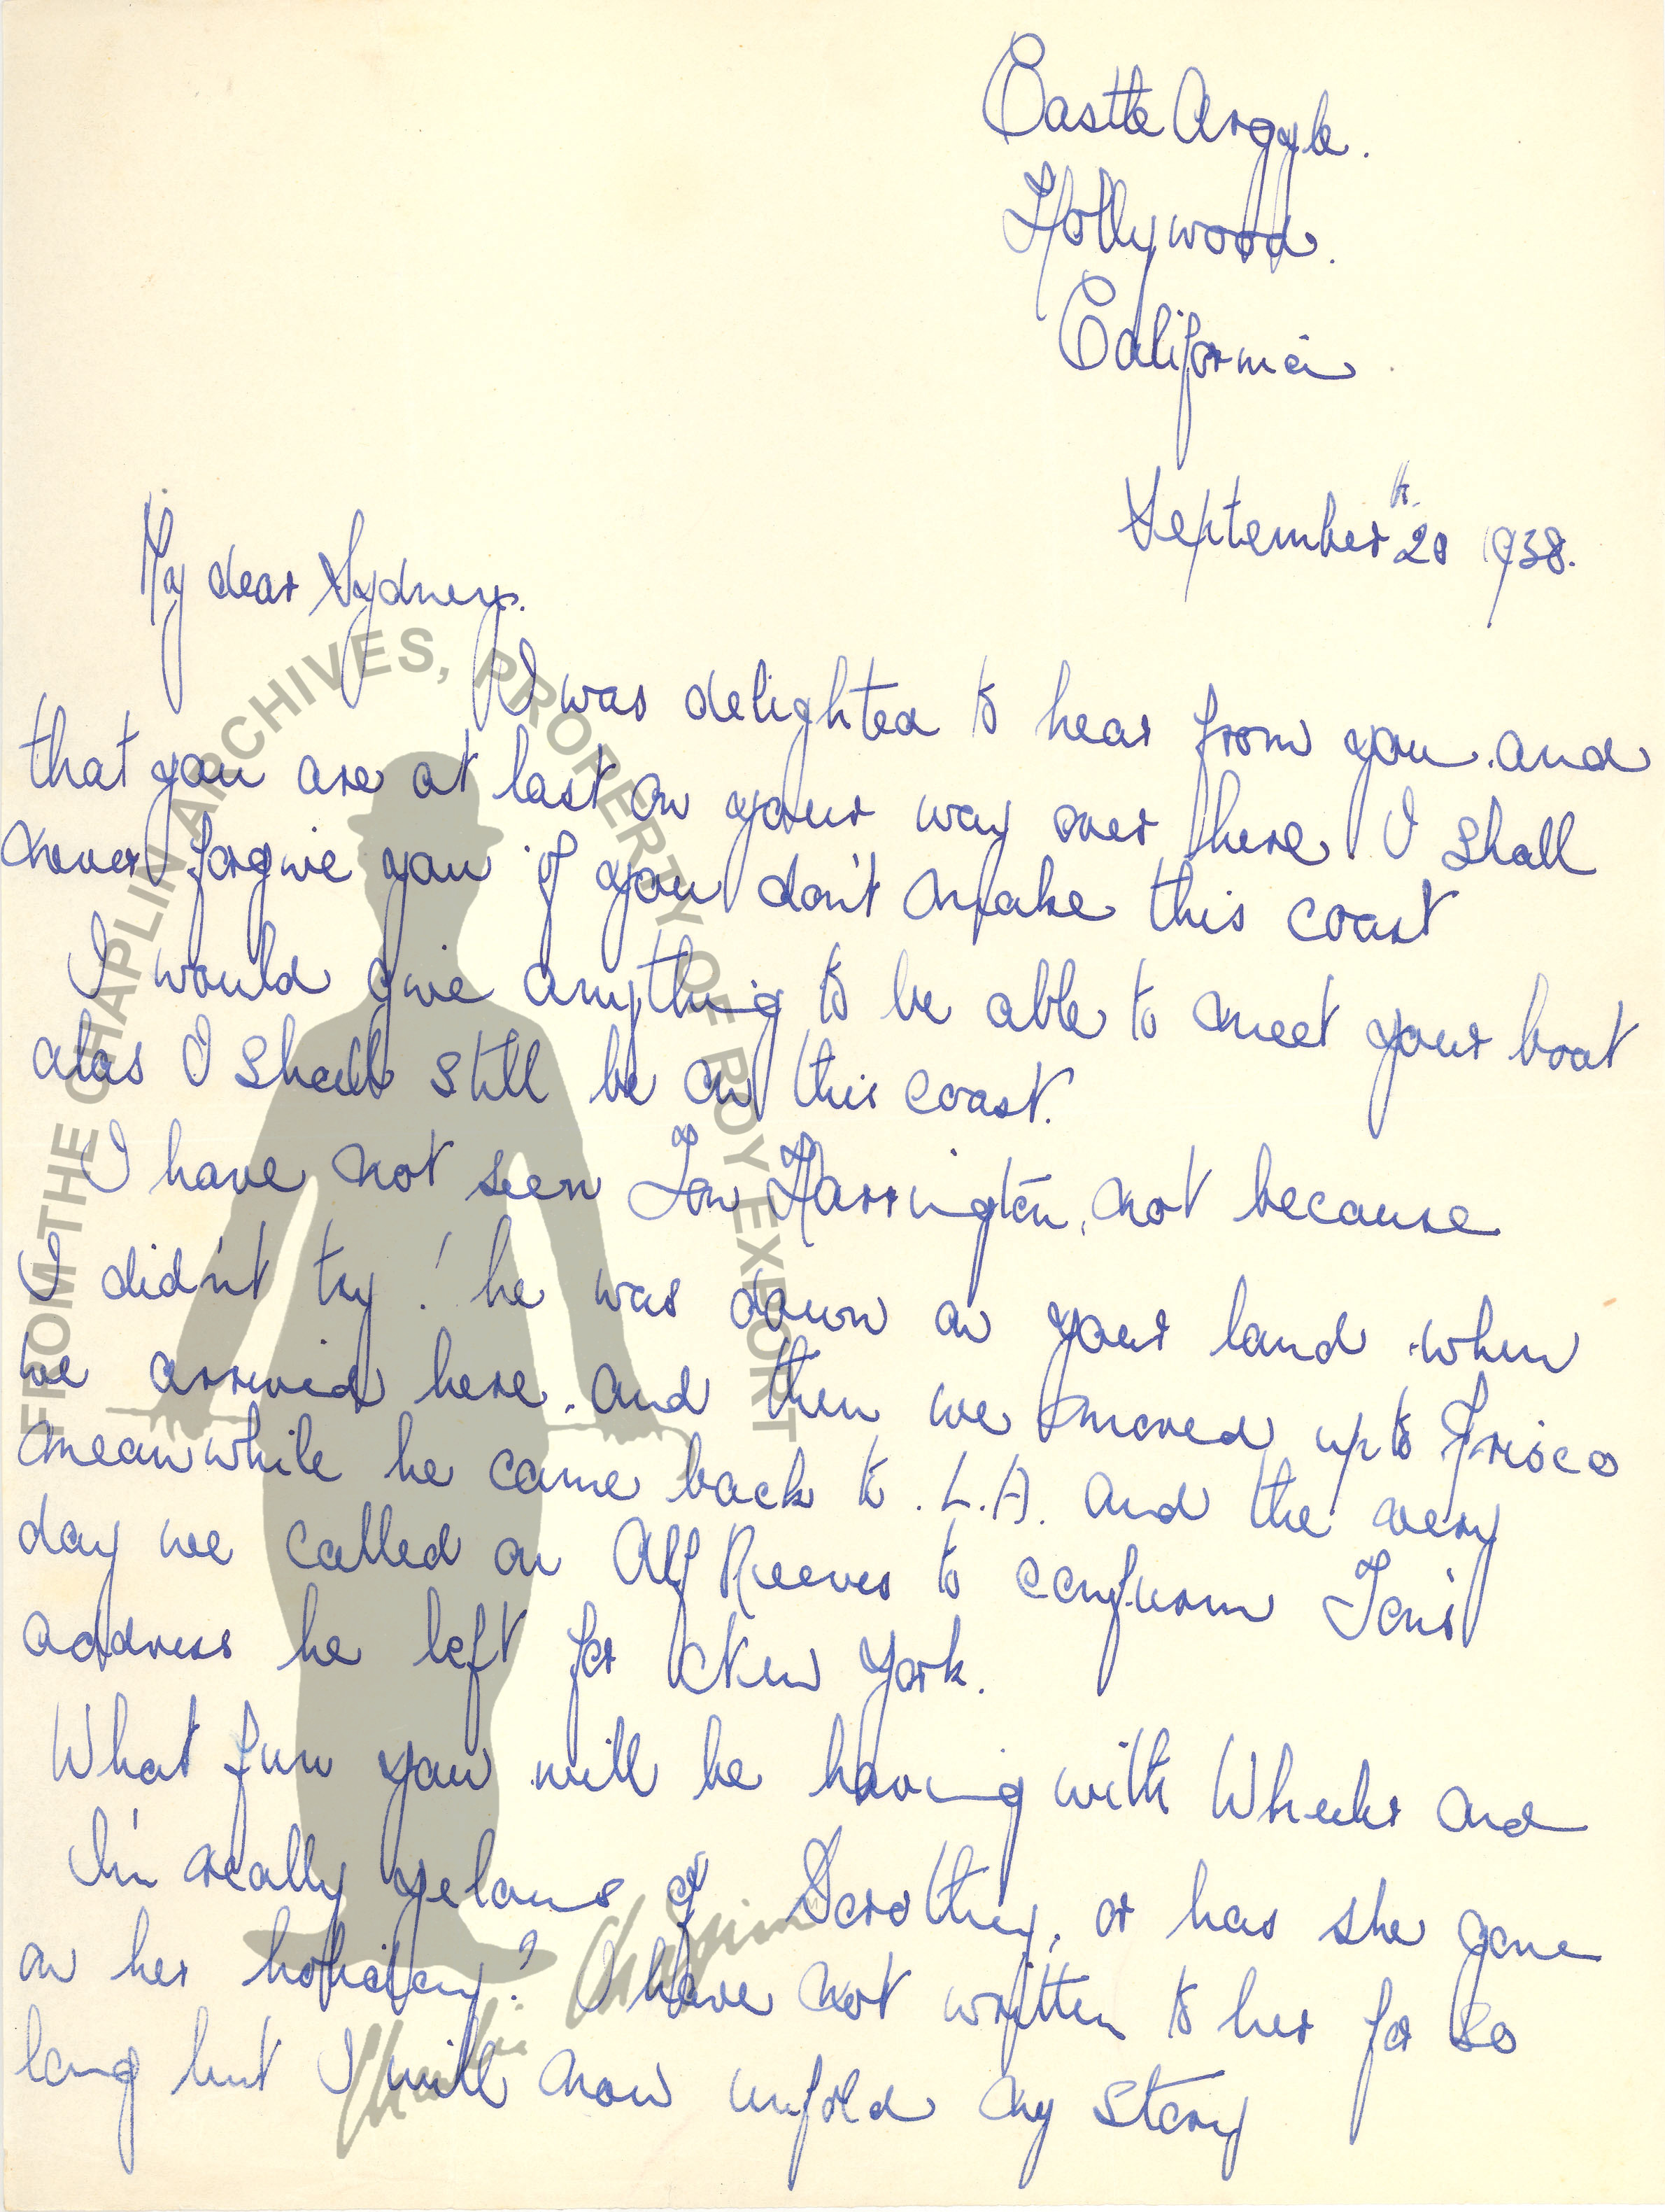 Castle Argyle.
Hollywood.
California.
September 20th 1938.
My dear Sydney.
I was delighted to hear from you and
that you are at last on your way over here. I shall
never forgive you if you don't make this coast
I would give anything to be able to meet your boat
alas I shall still be on this coast.
I have not seen Tom Harrington, not because
I didn't try! he was down on your land when
we arrived here. and then we moved up to Frisco
meanwhile he came back to L.A. and the very
day we called on Alf Reeves to confirm Tom's
address he left for New York.
What fun you will be having with Wheeler and
I'm really jelous of Dorothy, or has she gone
on her holiday? I have not written to her for so
long but I will now unfold my story
FROM THE CHAPLIN ARCHIVES, PROPERTY OF ROY EXPORT
Charlie Chaplin